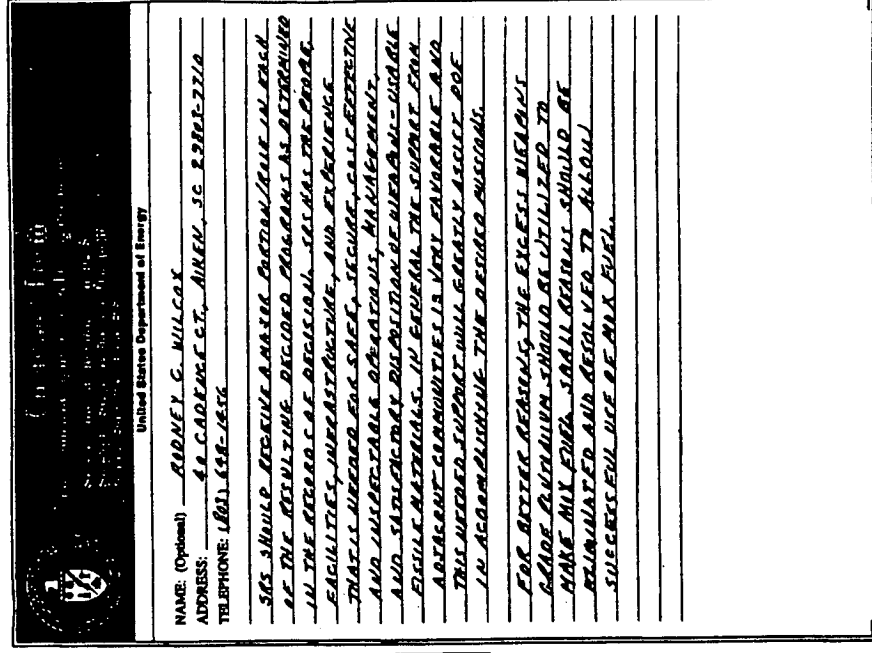 United States Department of Energy
NAME: (Optional) RODNEY C. WILCOX
ADDRESS: 40 CADENCE CT., AIKEN, SC 29803-7710
TELEPHONE: (803) 648-1456
SRS SHOULD RECEIVE A MAJOR PORTION/ROLE IN EACH
OF THE RESULTING DECIDED PROGRAMS AS DETERMINED
IN THE RECORD OF DECISION. SRS HAS THE PEOPLE,
FACILITIES, INFRASTRUCTURE, AND EXPERIENCE
THAT IS NEEDED FOR SAFE, SECURE, COST EFFECTIVE
AND INSPECTABLE OPERATIONS, MANAGEMENT,
AND SATISFACTORY DISPOSITION OF WEAPONS-USABLE
FISSILE MATERIALS. IN GENERAL THE SUPPORT FROM
ADJACENT COMMUNITIES IS VERY FAVORABLE AND
THIS NEEDED SUPPORT WILL GREATLY ASSIST DOE
IN ACCOMPLISHING THE DESIRED MISSIONS.
FOR BETTER REASONS, THE EXCESS WEAPONS
GRADE PLUTONIUM SHOULD BE UTILIZED TO
MAKE MOX FUEL. SMALL REASONS SHOULD BE
ELIMINATED AND RESOLVED TO ALLOW
SUCCESSFUL USE OF MOX FUEL.